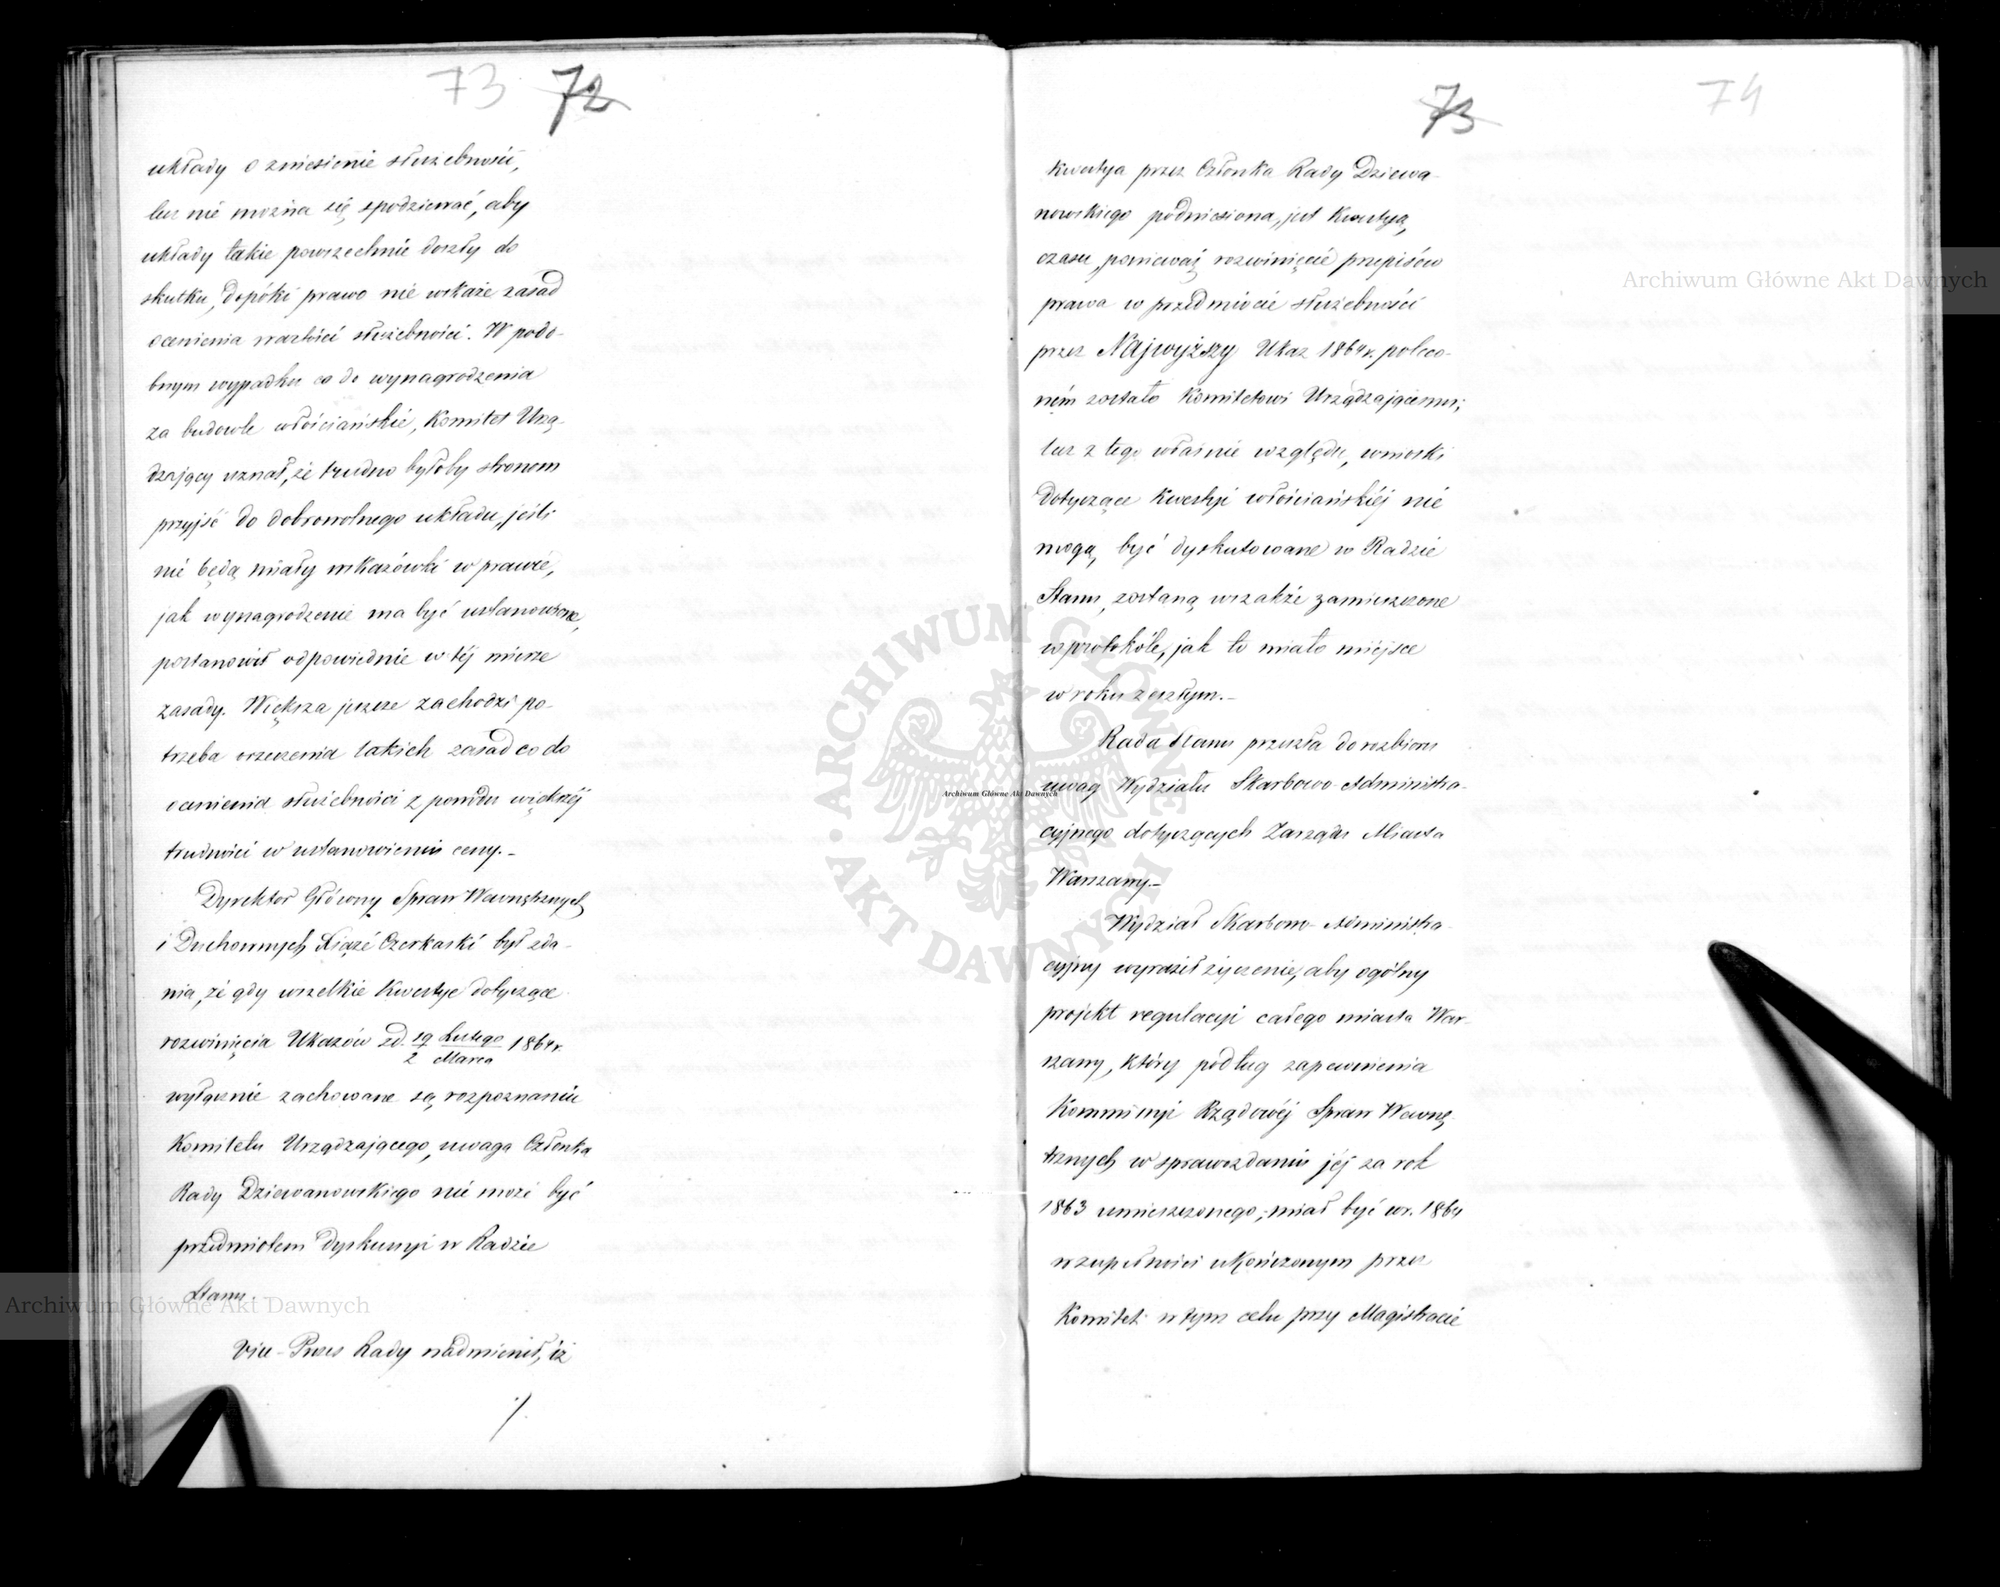 73 72
układy o zniesienie służebności,
lecz nie można się spodziewać, aby
układy takie powszechnie doszły do
skutku, dopóki prawo nie wskaże zasad
ocenienia wartości służebności. W podo-
bnym wypadku co do wynagrodzenia
za budowle włościańskie, Komitet Urzą-
dzający uznał, że trudno byłoby stronom
przyjść do dobrowolnego układu, jeśli
nie będą miały wskazówki w prawie,
jak wynagrodzenie ma być ustanowione,
postanowił odpowiednie w téj mierze
zasady. Większa jeszcze zachodzi po-
trzeba orzeczenia takich zasad co do
ocenienia służebności z powodu większéj
trudności w ustanowieniu ceny.–
Dyrektor Główny Spraw Wewnętrznych
i Duchownych Xiążę Czerkaski był zda-
nia, że gdy wszelkie kwestye dotyczące
rozwinięcia Ukazów z d. 19 Lutego 1864 r.
2 Marca
wyłącznie zachowane są rozpoznaniu
Komitetu Urządzającego, uwaga Członka
Rady Dziewanowskiego nie może być
przedmiotem dyskussyi w Radzie
Stanu.
Vice-Prezes Rady nadmienił, iż
./.
73 74
kwestya przez Członka Rady Dziewa-
nowskiego podniesiona, jest kwestyą
czasu, ponieważ rozwinięcie przepisów
prawa w przedmiocie służebności
przez Najwyższy Ukaz 1864 r. poleco-
ném zostało Komitetowi Urządzającemu;
lecz z tego właśnie względu, wnioski
dotyczące kwestyi włościańskiéj nie
mogą być dyskutowane w Radzie
Stanu, zostaną wszakże zamieszczone
w protokóle, jak to miało miejsce
w roku zeszłym.–
Rada Stanu przeszła do rozbioru
uwag Wydziału Skarbowo-Administra-
cyjnego dotyczących Zarządu Miasta
Warszawy.–
Wydział Skarbowo-Administra-
cyjny wyraził życzenie, aby ogólny
projekt regulacyi całego miasta War-
szawy, który podług zapewnienia
Kommissyi Rządowéj Spraw Wewnę-
trznych w sprawozdaniu jéj za rok
1863 umieszczonego, miał być w r. 1864
w zupełności ukończonym przez
Komitet w tym celu przy Magistracie
Archiwum Główne Akt Dawnych
Archiwum Główne Akt Dawnych
Archiwum Główne Akt Dawnych
ARCHIWUM GŁÓWNE AKT DAWNYCH